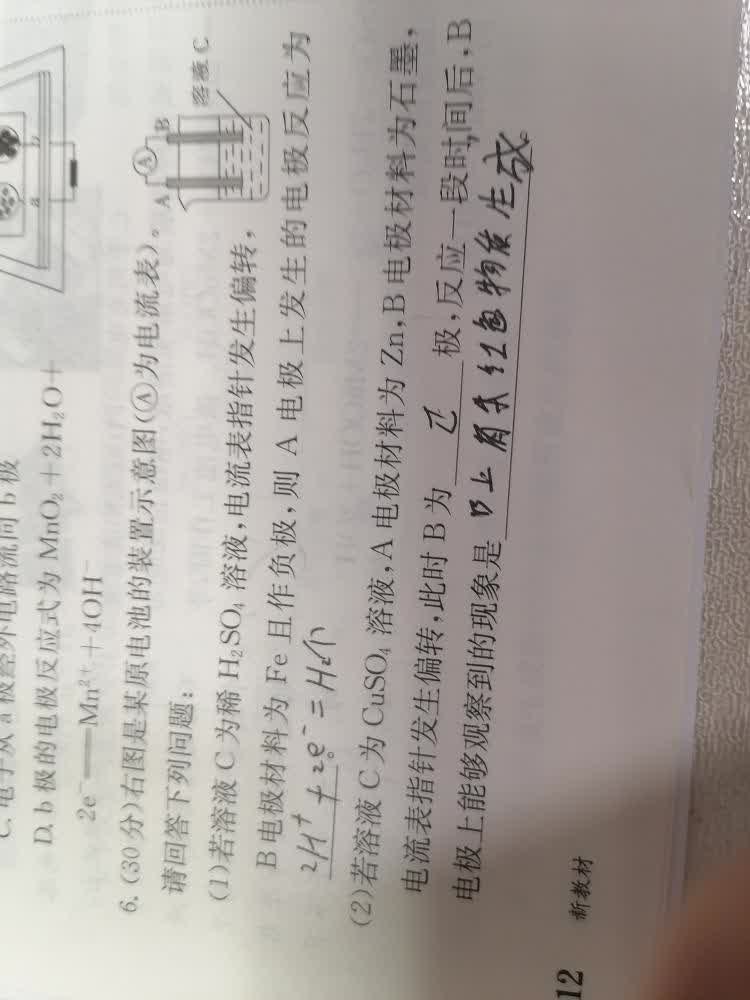 C. 电子从 a 极经外电路流向 b 极
D. b 极的电极反应式为 MnO₂+2H₂O+
2e⁻══Mn²⁺+4OH⁻
a
b
6. (30分)右图是某原电池的装置示意图(Ⓐ为电流表)。
请回答下列问题:
A
A
B
溶液 C
(1)若溶液 C 为稀 H₂SO₄ 溶液,电流表指针发生偏转,
B 电极材料为 Fe 且作负极,则 A 电极上发生的电极反应为
2H⁺+2e⁻=H₂↑
(2)若溶液 C 为 CuSO₄ 溶液,A 电极材料为 Zn,B 电极材料为石墨,
电流表指针发生偏转,此时 B 为 正 极,反应一段时间后,B
电极上能够观察到的现象是 B上有红色物质生成。
12
新教材